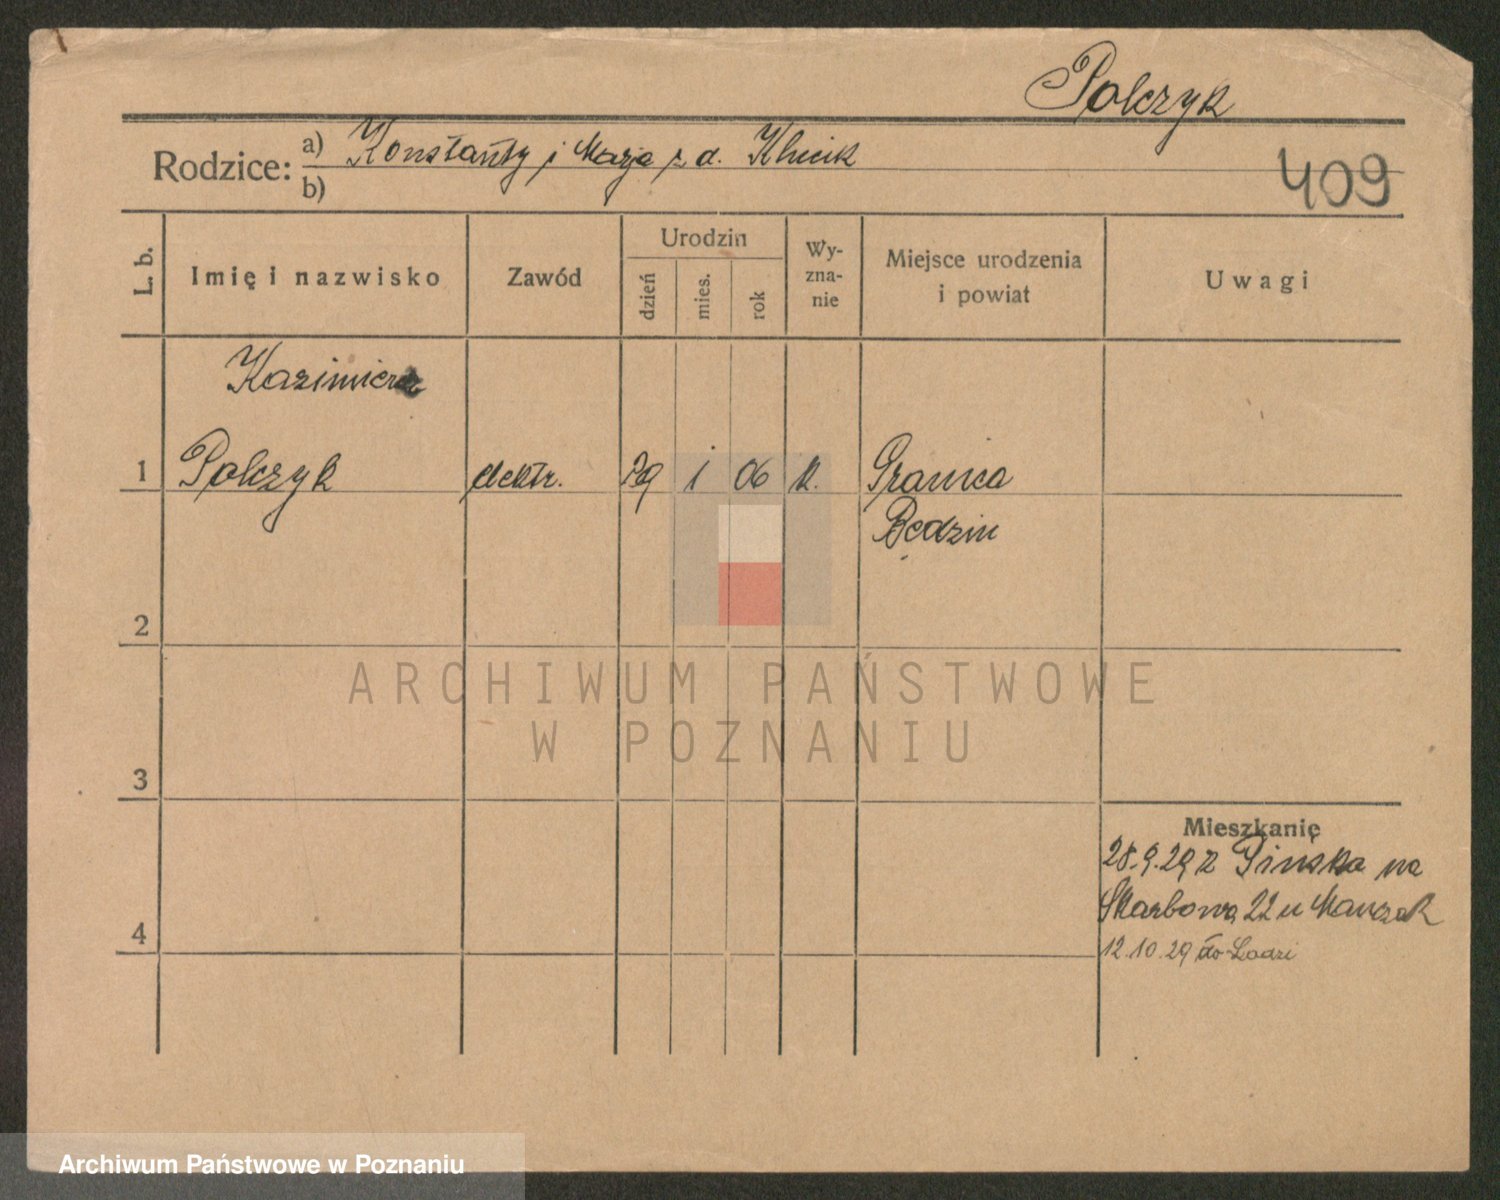 Polczyk
Rodzice: a) Konstanty i Marja z d. Klucik
b)
409
L. b.
Imię i nazwisko
Zawód
Urodzin
dzień
mies.
rok
Wy-
zna-
nie
Miejsce urodzenia
i powiat
Uwagi
Kazimierz
1 Polczyk elektr. 29 1 06 k. Granica
Będzin
2
3
4
Mieszkanie
28.9.29 z Pińska na
Skarbowa 22 u Marczak
12.10.29 do Łodzi
ARCHIWUM PAŃSTWOWE
W POZNANIU
Archiwum Państwowe w Poznaniu